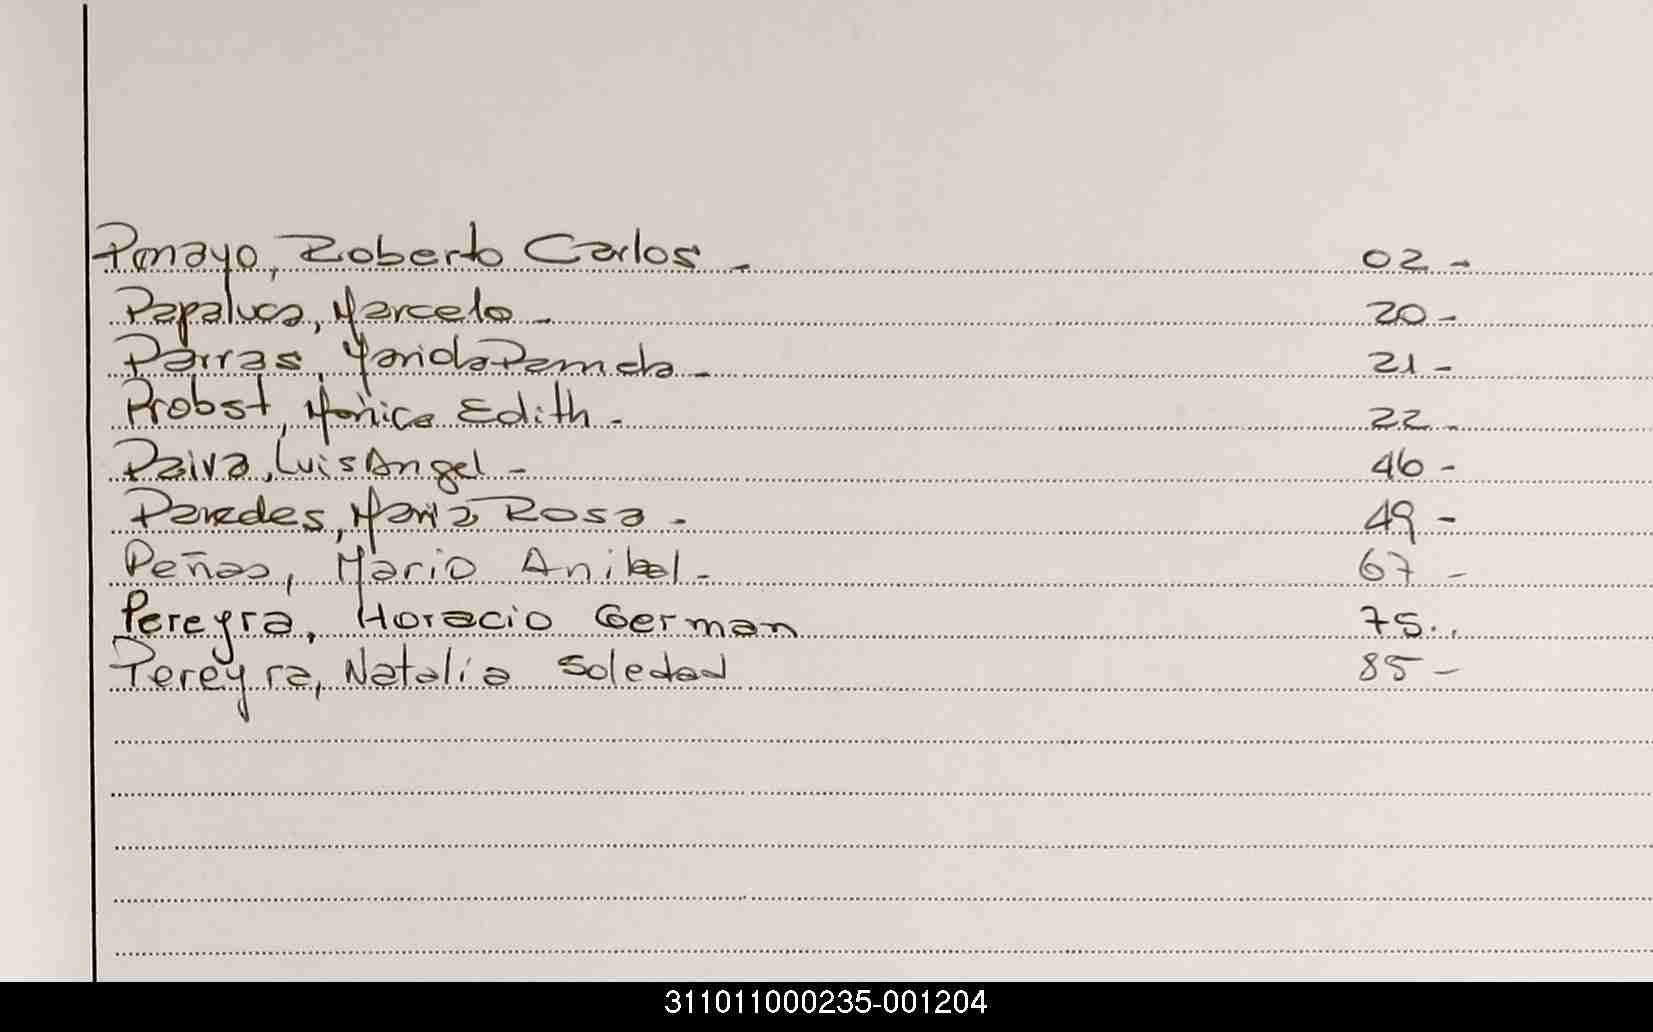 Pinayo, Roberto Carlos - 02 -
Papaluca, Marcelo - 20 -
Parras, Mariela Pamela - 21 -
Probst, Mónica Edith - 22 -
Paiva, Luis Angel - 46 -
Paredes, María Rosa - 49 -
Peñas, Mario Anibal - 67 -
Pereyra, Horacio German 75 . .
Pereyra, Natalia Soledad 85 -
311011000235-001204